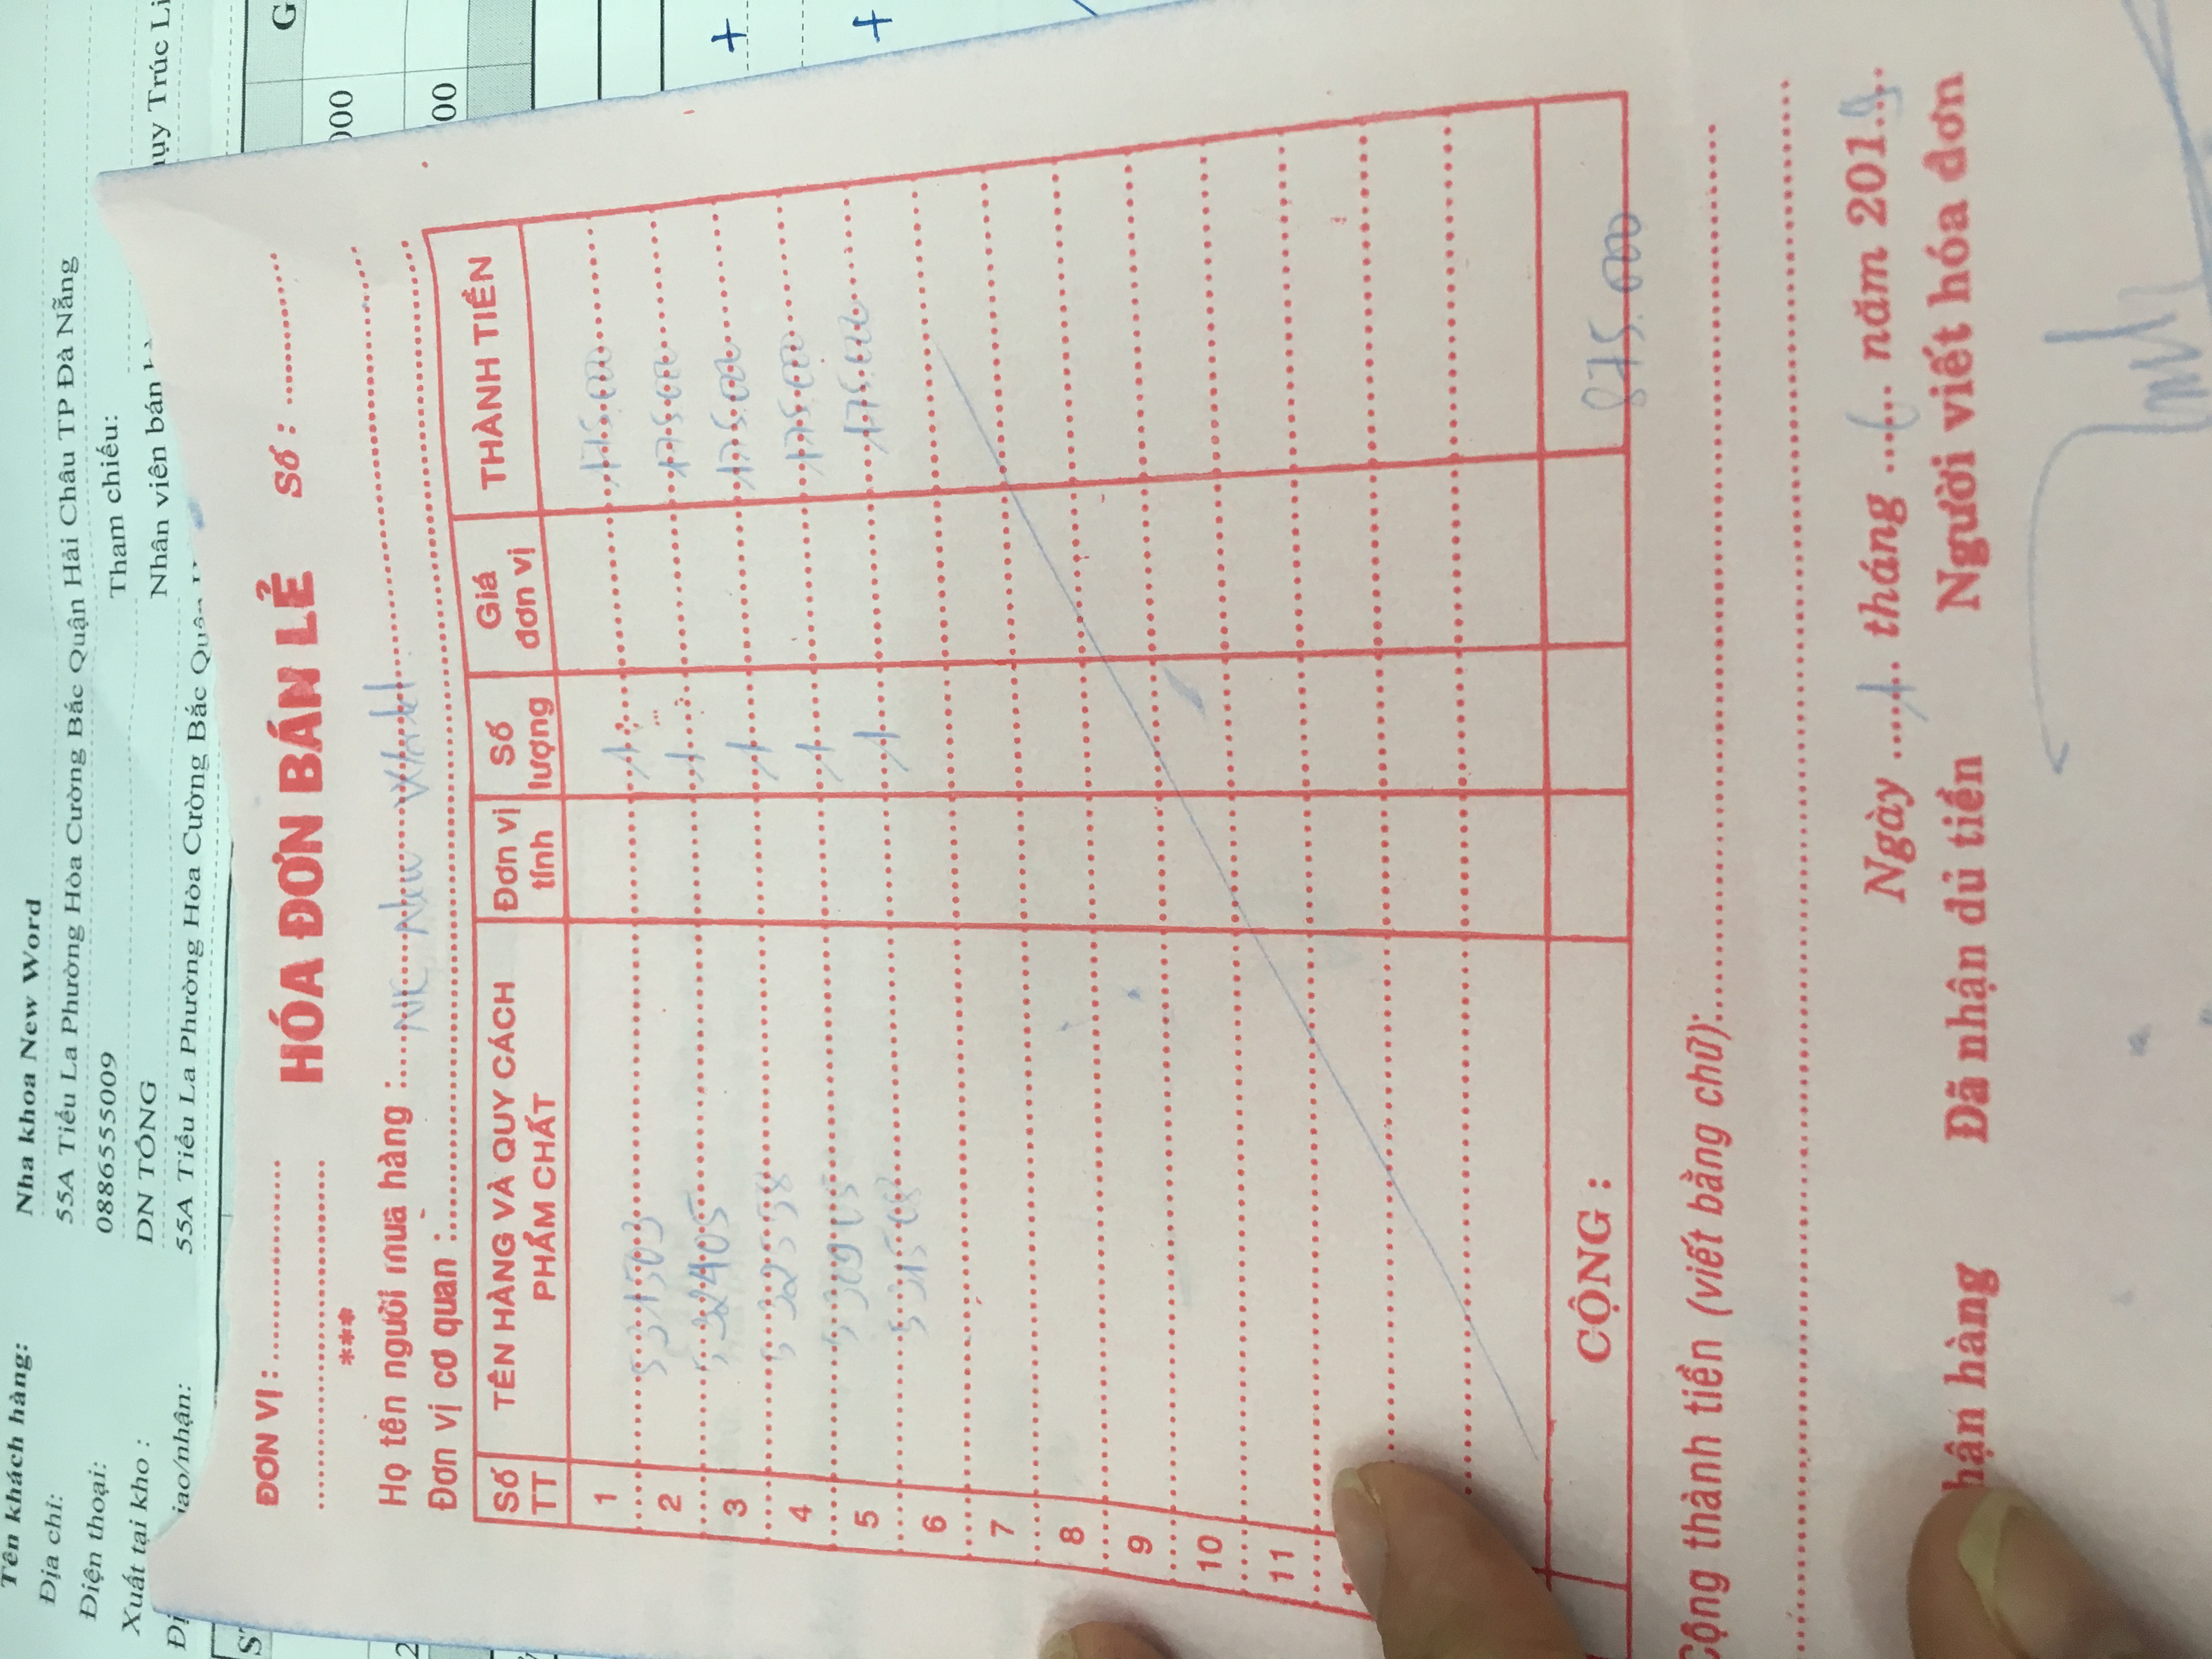 Tên khách hàng: Nha khoa New Word
Địa chỉ: 55A Tiểu La Phường Hòa Cường Bắc Quận Hải Châu TP Đà Nẵng
Điện thoại: 0886555009 Tham chiếu:
Xuất tại kho : DN TỔNG Nhân viên bán Trúc
55A Tiểu La Phường Hòa Cường Bắc Quận
ĐƠN VỊ : HÓA ĐƠN BÁN LẺ Số :
***
Họ tên người mua hàng : NK New World
Đơn vị cơ quan :
Số TT TÊN HÀNG VÀ QUY CÁCH PHẨM CHẤT Đơn vị tính Số lượng Giá đơn vị THÀNH TIỀN
1 531503 1 175.000
2 532405 1 175.000
3 532558 1 175.000
4 1 175.000
5 531508 1 175.000
6
7
8
9
10
11
CỘNG : 875.000
Cộng thành tiền (viết bằng chữ):
Ngày 1 tháng 6 năm 2019
hận hàng Đã nhận đủ tiền Người viết hóa đơn